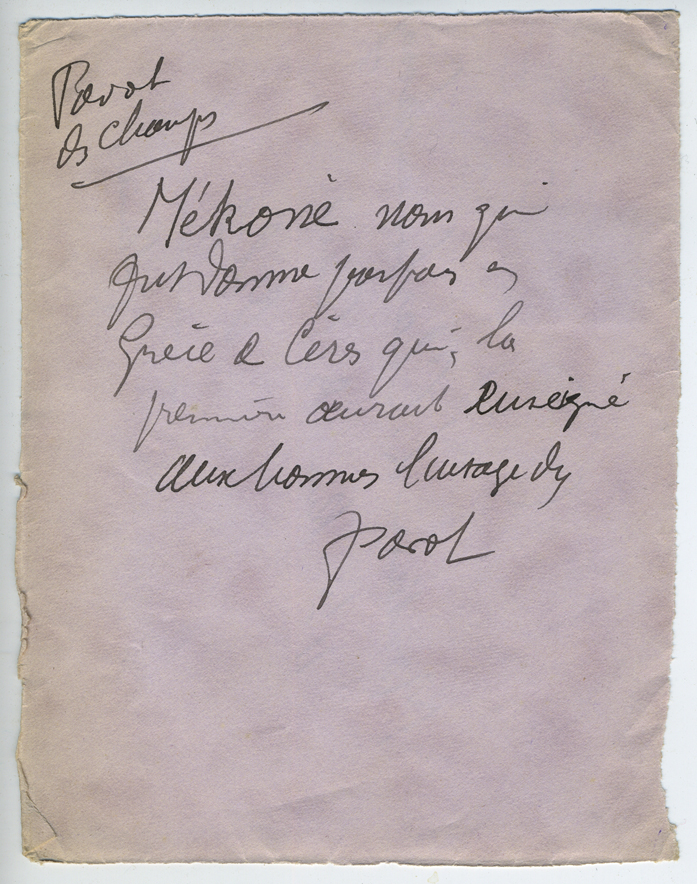 Pavot
des champs
Mékonè nom qui
fut donné parfois en
Grèce à Cérès qui, la
première aurait enseigné
aux hommes l'usage du
pavot